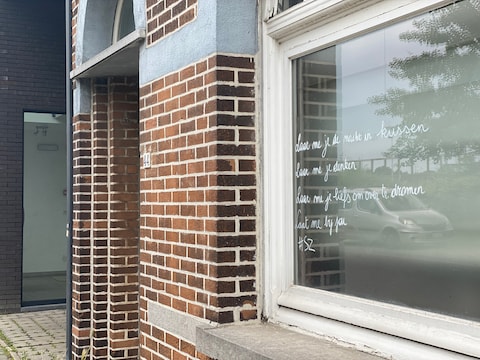 Laat me je de nacht in kussen
Laat me je denken
Laat me je liefs om over te dromen
Laat me bij jou
#SZ